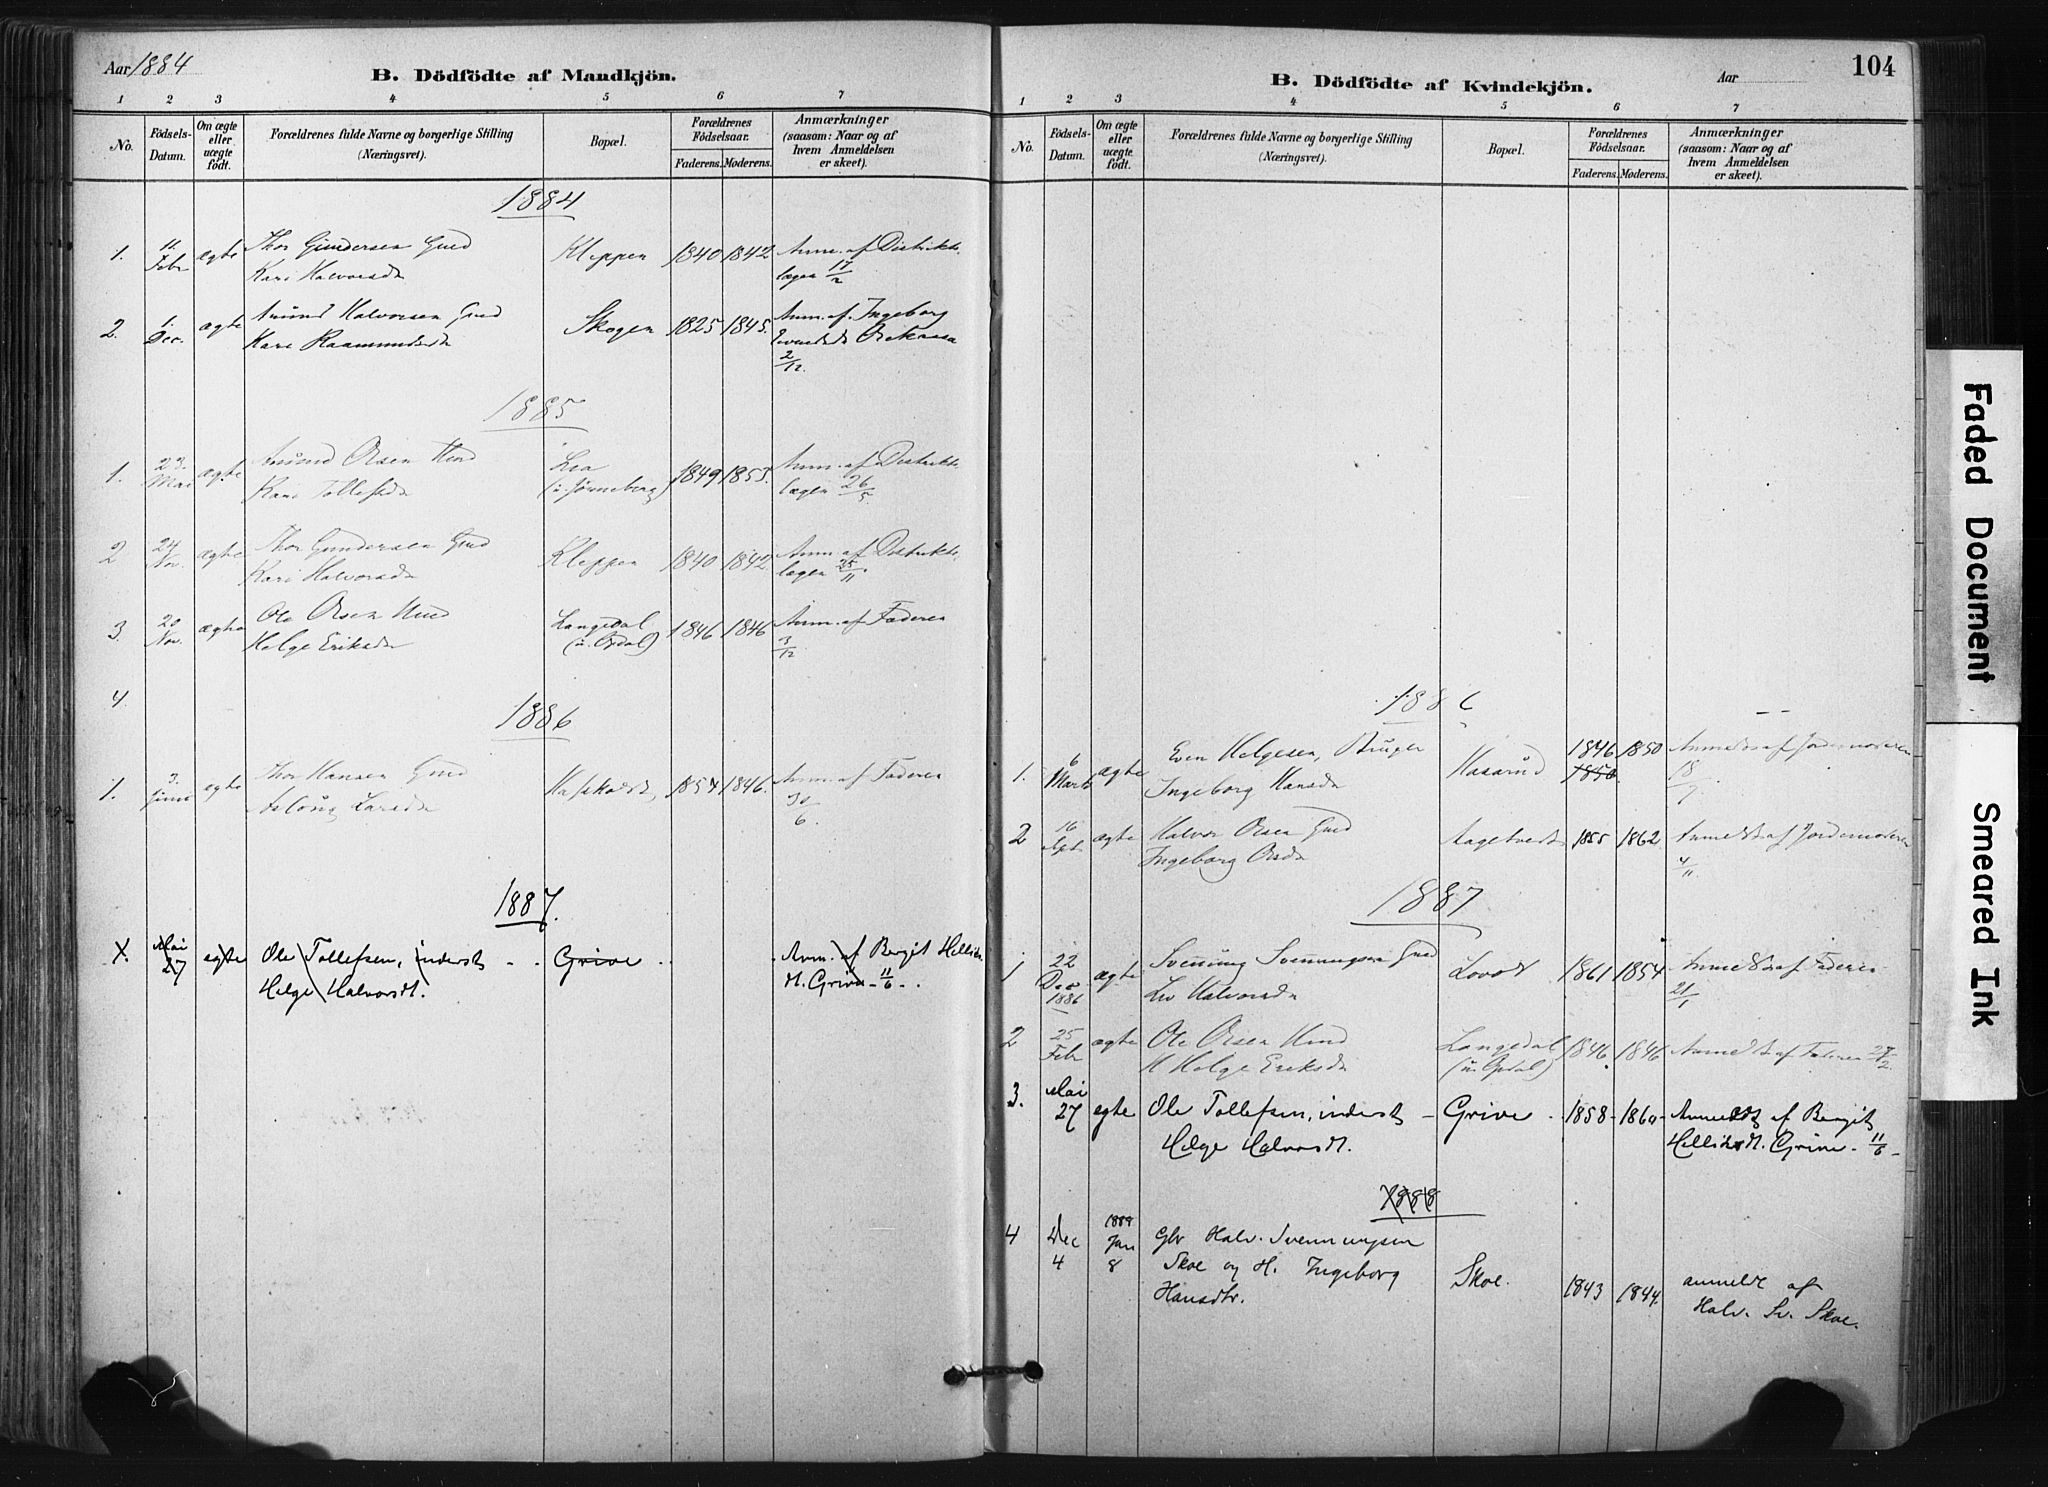 Aar 1884
B. Dödfödte af Mandkjön.
1 2 3 4 5 6 7
No.
Födsels-
Datum.
Om ægte
eller
uægte
födt.
Forældrenes fulde Navne og borgerlige Stilling
(Næringsvei).
Bopæl.
Forældrenes
Födselsaar.
Faderens. Moderens.
Anmærkninger
(saasom: Naar og af
hvem Anmeldelsen
er skeet).
1884
1. 11 Febr ægte Thor Gundersen Gmd Kleppen 1840 1842 Anm. af Distrikts-
Kari Halvorsdr lægen 17/2
2. 1. Dec. ægte Anund Halvorsen Gmd Skogen 1825 1845. Anm. af Ingeborg
Kari Raamundsdr
2/12.
1885
1. 23. Mai ægte Anund Olsen Hmd Lia 1849 1853. Anm. af Distrikts-
Kari Tollefsdr lægen 26/5
2 24 Nov. ægte Thor Gundersen Gmd Kleppen 1840 1842. Anm. af Distrikts-
Kari Halvorsdr lægen 25/11.
3. 20 Nov. ægte Ole Olsen Hmd Langedal 1846 1846 Anm. af Faderen
Helge Eriksdr (u. Opdal) 3/12
4
1886
1. 3. Juni egte Thor Hansen Gmd 1854 1846. Anm. af Faderen
Aslaug Larsdr 30/6.
1887.
Mai 27 egte Ole Tollefsen, inderst - Grive Anm. af Bergit
Helge Halvorsdt. Grive - 11/6 -
104
B. Dödfödte af Kvindekjön.
Aar
1 2 3 4 5 6 7
No.
Födsels-
Datum.
Om ægte
eller
uægte
födt.
Forældrenes fulde Navne og borgerlige Stilling
(Næringsvei).
Bopæl.
Forældrenes
Födselsaar.
Faderens. Moderens.
Anmærkninger
(saasom: Naar og af
hvem Anmeldelsen
er skeet).
1886
1. 6 Marts ægte Even Helgesen, Bruger Haasrud 1846 1850 Anmeldt af Jordemoderen
Ingeborg Hansdr 1850. 18/7
2 16 ægte Halvor Olsen Gmd Aagetvedt 1855 1862 Anmeldt af Jordemoderen
Ingeborg Olsdr 4/11.
1887
1 22 Dec 1886 ægte Svenning Svenningsen Gmd 1861 1854 Anmeldt af Faderen
Liv Halvorsdr 21/1
2 25 Febr ægte Ole Olsen Hmd Langedal 1846 1846 Anmeldt af Faderen 27/2.
H Helge Eriksdr (u. Opdal)
3. Mai 27 egte Ole Tollefsen, inderst - Grive 1858 - 1860 - Anmeldt af Bergit
Helge Halvorsdt. Grive - 11/6 -
1888
4 Dec 4 1889 Jan 8 Gbr Halv. Svenningsen
Skoe og H. Ingeborg Skoe. 1843 1844. anmeldt af
Hansdtr. Halv. Sv. Skoe.
Faded Document
Smeared Ink